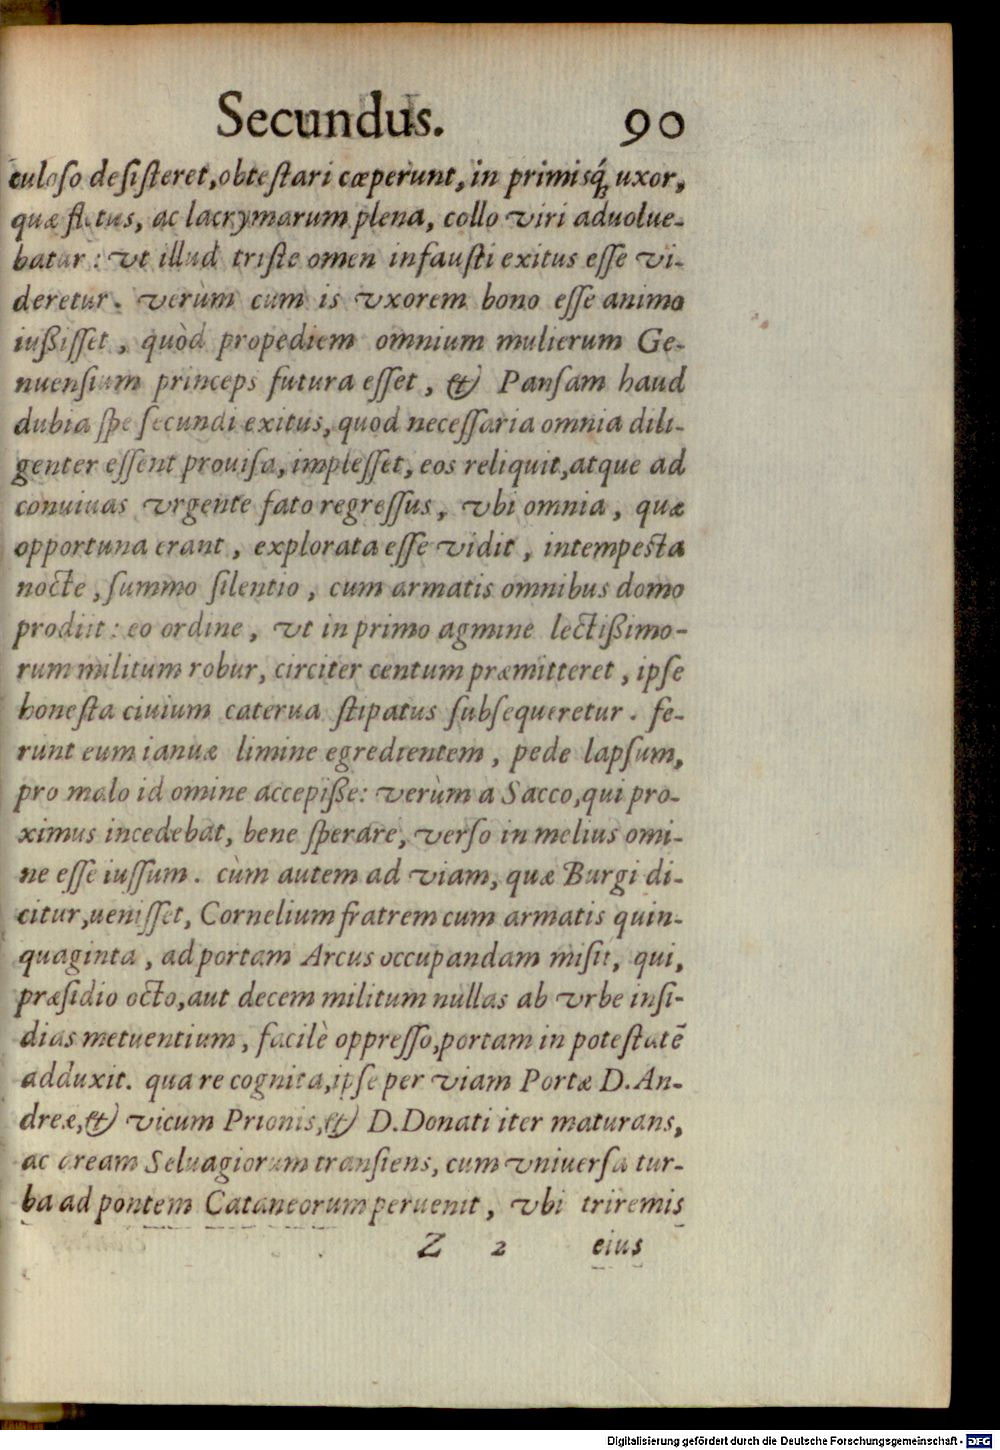 Secundus. 90
culoso desisteret, obtestari cæperunt, in primisq́; uxor,
quæ fletus, ac lacrymarum plena, collo viri aduolue-
batur: vt illud triste omen infausti exitus esse vi-
deretur. verùm cum is vxorem bono esse animo
iußisset, quòd propediem omnium mulierum Ge-
nuensium princeps futura esset, & Pansam haud
dubia spe secundi exitus, quod necessaria omnia dili-
genter essent prouisa, implesset, eos reliquit, atque ad
conuiuas vrgente fato regressus, vbi omnia, quæ
opportuna erant, explorata esse vidit, intempesta
nocte, summo silentio, cum armatis omnibus domo
prodiit: eo ordine, vt in primo agmine lectißimo-
rum militum robur, circiter centum præmitteret, ipse
honesta ciuium caterua stipatus subsequeretur. fe-
runt eum ianuæ limine egredientem, pede lapsum,
pro malo id omine accepiße: verùm a Sacco, qui pro-
ximus incedebat, bene sperare, verso in melius omi-
ne esse iussum. cùm autem ad viam, quæ Burgi di-
citur, uenisset, Cornelium fratrem cum armatis quin-
quaginta, ad portam Arcus occupandam misit, qui,
præsidio octo, aut decem militum nullas ab vrbe insi-
dias metuentium, facilè oppresso, portam in potestatē
adduxit. qua re cognita, ipse per viam Portæ D. An-
dreæ, & vicum Prionis, & D. Donati iter maturans,
ac aream Seluagiorum transiens, cum vniuersa tur-
ba ad pontem Cataneorum peruenit, vbi triremis
Z 2 eius
Digitalisierung gefördert durch die Deutsche Forschungsgemeinschaft - DFG